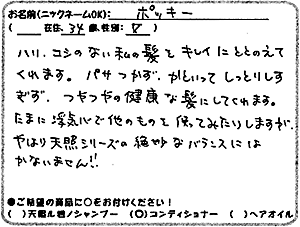 お名前(ニックネームOK): ポッキー
( 在住、34歳、性別: )
ハリ、コシのない私の髪をキレイにととのえて
くれます。パサつかず、かといってしっとりしす
ぎず、つやつやの健康な髪にしてくれます。
たまに浮気心で他のものを使ってみたりしますが、
やはり天照シリーズの絶妙なバランスには
かないません!!
●ご希望の商品に○をお付けください!
( )天照ル岩ノシャンプー (○)コンディショナー ( )ヘアオイル